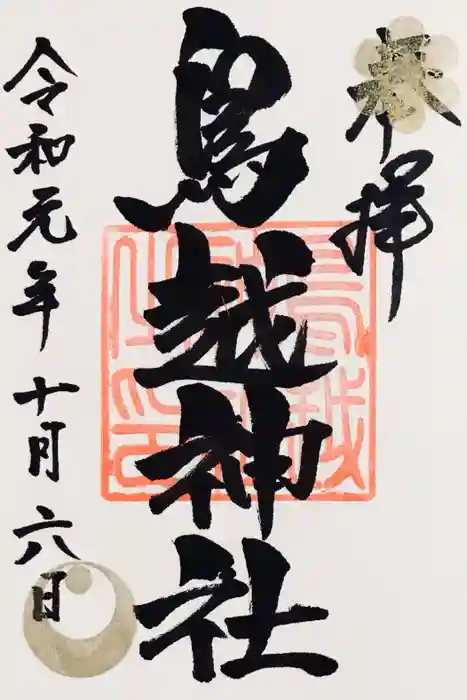 奉拝
鳥越神社
令和元年十月六日